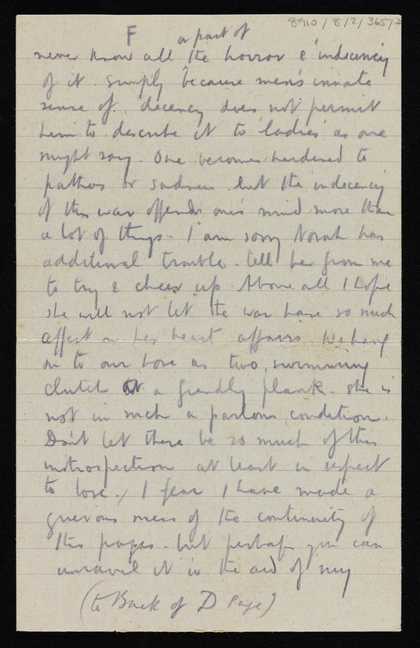 8910/8/2/365/2
F a part of
never know all the horror & indecency
of it simply because men's innate
sense of decency does not permit
him to describe it to 'ladies' as one
might say. One becomes hardened to
pathos or sadness but the indecency
of this war offends one's mind more than
a lot of things. I am sorry Norah has
additional trouble. Tell her from me
to try & cheer up. Above all I hope
she will not let the war have so much
affect on her heart affairs. We hang
on to our love as two swimming
clutch at a friendly plank. She is
not in such a parlous condition.
Don't let there be so much of this
introspection at least in respect
to love. I fear I have made a
grievous mess of the continuity of
this pages - but perhaps you can
unravel it in the aid of my
(to Back of D page)